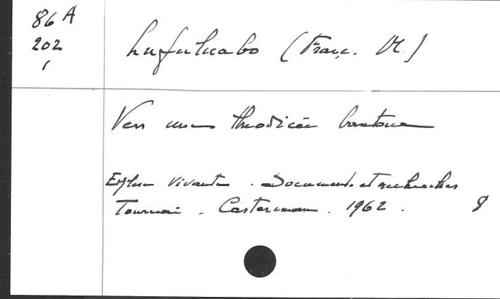 86 A
202
1
Lufuluabo (Franç. M)
Vers une théodicée bantoue
Eglise vivante. Documents et recherches
Tournai. Casterman. 1962. 8